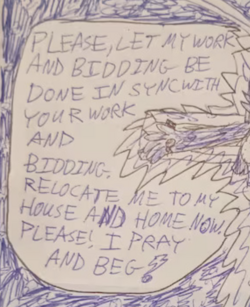 PLEASE, LET MY WORK
AND BIDDING BE
DONE IN SYNC WITH
YOUR WORK
AND
BIDDING.
RELOCATE ME TO MY
HOUSE AND HOME NOW.
PLEASE! I PRAY
AND BEG